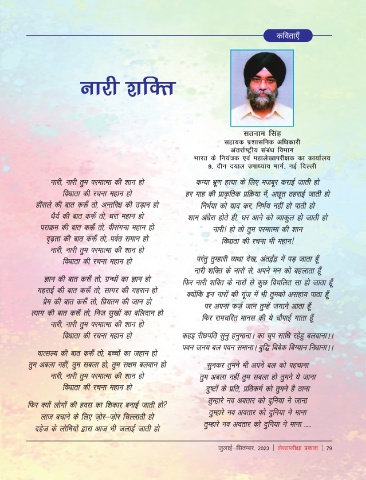 कविताएँ
नारी शक्ति
सतनाम सिंह
सहायक प्रशासनिक अधिकारी
अंतर्राष्ट्रीय संबंध विभाग
भारत के नियंत्रक एवं महालेखापरीक्षक का कार्यालय
9, दीन दयाल उपाध्याय मार्ग, नई दिल्ली
नारी, नारी तुम परमात्मा की शान हो
विधाता की रचना महान हो
हौसले की बात करूँ तो, अन्तरिक्ष की उड़ान हो
धैर्य की बात करूँ तो, धरा महान हो
पराक्रम की बात करूँ तो, वीरांगना महान हो
दृढ़ता की बात करूँ तो, पर्वत समान हो
नारी, नारी तुम परमात्मा की शान हो
विधाता की रचना महान हो
ज्ञान की बात करूँ तो, ग्रन्थों का ज्ञान हो
गहराई की बात करूँ तो, सागर की गहरान हो
प्रेम की बात करूँ तो, प्रियतम की जान हो
त्याग की बात करूँ तो, निज सुखों का बलिदान हो
नारी, नारी तुम परमात्मा की शान हो
विधाता की रचना महान हो
वात्सल्य की बात करूँ तो, बच्चों का जहान हो
तुम अबला नहीं, तुम सबला हो, तुम सक्षम बलवान हो
नारी, नारी तुम परमात्मा की शान हो
विधाता की रचना महान हो
फिर क्यों लोगों की हवस का शिकार बनाई जाती हो?
लाज बचाने के लिए ज़ोर-ज़ोर चिल्लाती हो
दहेज के लोभियों द्वारा आज भी जलाई जाती हो
कन्या भ्रूण हत्या के लिए मजबूर कराई जाती हो
हर माह की प्राकृतिक प्रक्रिया में, अछूत ठहराई जाती हो
निर्भया को याद कर, निर्भय नहीं हो पाती हो
शाम अंधेरा होते ही, घर आने को व्याकुल हो जाती हो
नारी! हो तो तुम परमात्मा की शान
विधाता की रचना भी महान!
परंतु तुम्हारी व्यथा देख, अंतर्द्वंद्व में पड़ जाता हूँ
नारी शक्ति के नारों से, अपने मन को बहलाता हूँ
फिर नारी शक्ति के नारों से कुछ विचलित सा हो जाता हूँ
क्योंकि इन नारों की गूंज में भी तुमको असहाय पाता हूँ
पर अपना फ़र्ज़ जान तुम्हें जगाने आता हूँ
फिर रामचरित मानस की ये चौपाई गाता हूँ
कहइ रीछपति सुनु हनुमाना। का चुप साधि रहेहु बलवाना।।
पवन तनय बल पवन समाना। बुद्धि बिबेक बिग्यान निधाना।।
सुनकर तुमने भी अपने बल को पहचाना
तुम अबला नहीं, तुम सबला हो तुमने ये जाना
दुष्टों के प्रति, प्रतिकर्म को तुमने है ठाना
तुम्हारे नव अवतार को दुनिया ने जाना
तुम्हारे नव अवतार को दुनिया ने माना
तुम्हारे नव अवतार को दुनिया ने माना ....
जुलाई-सितम्बर 2023 | लेखापरीक्षा प्रकाश | 79